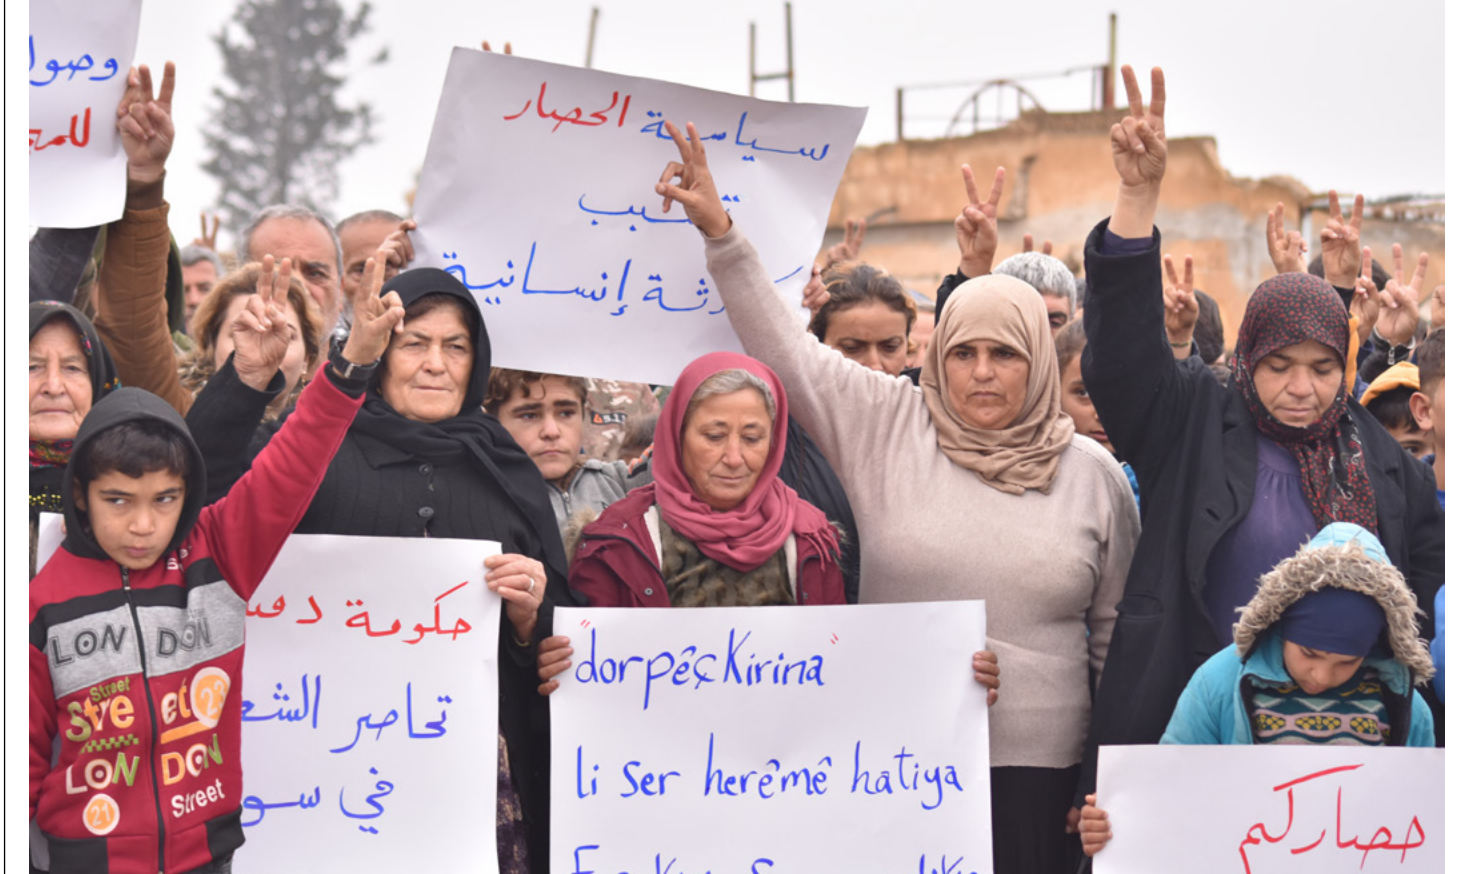 وصوا
للمح
سياسة الحصار
تسبب
كارثة إنسانية
حكومة دمش
تحاصر الشع
في سو
"dorpêçkirina"
li ser herêmê hatiya
حصاركم
LONDON
Street
Stre et 23
LONDON
21 Street